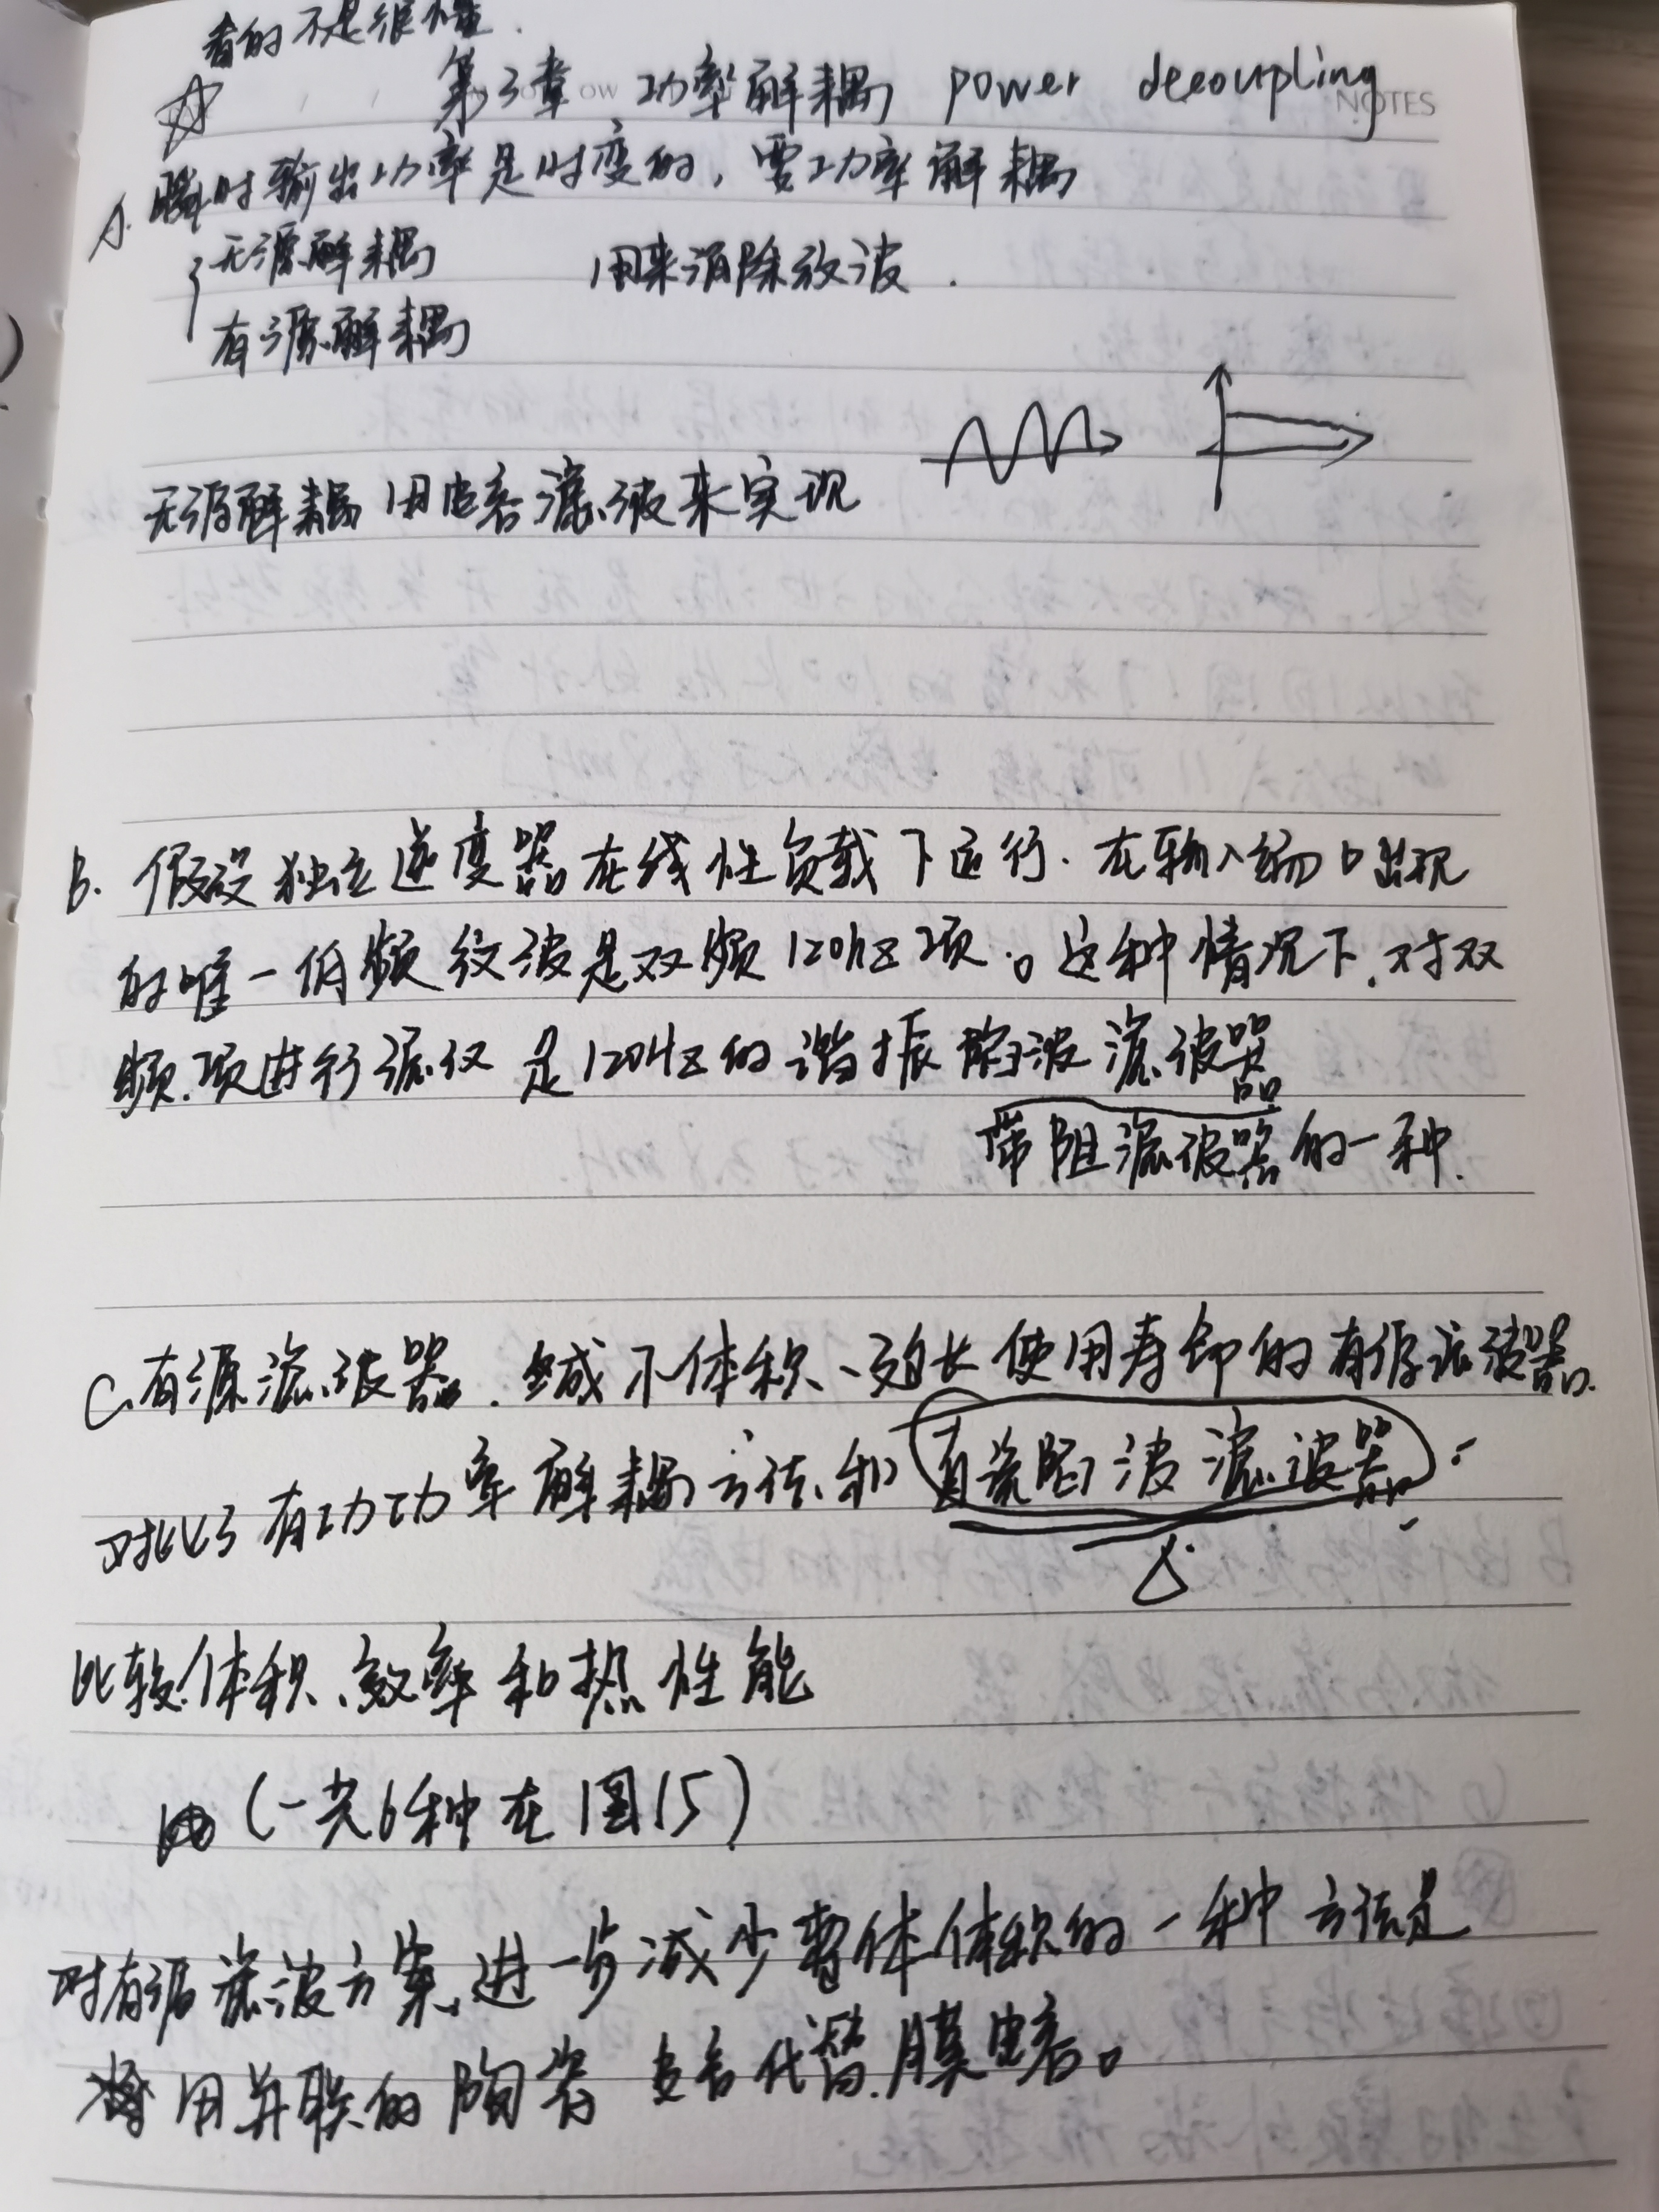 看的不是很懂.
☆ 第3章 功率解耦 power decoupling
NOTES
A. 瞬时输出功率是时变的, 要功率解耦
无源解耦 用来消除纹波.
有源解耦
无源解耦 用电容滤波来实现
B. 假设独立逆变器在线性负载下运行. 在输入端口出现
的唯一低频纹波是双频120hz项。这种情况下, 对双
频项进行滤仅是120Hz的谐振陷波滤波器
带阻滤波器的一种.
C. 有源滤波器. 减小体积、延长使用寿命的有源滤波器.
对比了有功功率解耦方法和直流陷波滤波器:
△
比较体积、效率和热性能
(一共6种在图15)
对有源滤波方案, 进一步减少整体体积的一种方法是
用并联的陶瓷电容代替膜电容。